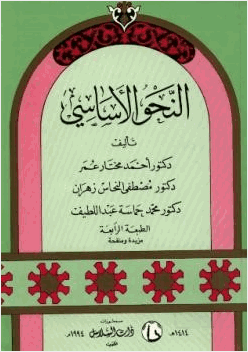 النحو الأساسي
تأليف
دكتور أحمد مختار عمر
دكتور مصطفى النحاس زهران
دكتور محمد حماسة عبد اللطيف
الطبعة الرابعة
مزيدة ومنقحة
منشورات
ذات السلاسل
الكويت
١٤١٤هـ
١٩٩٤م